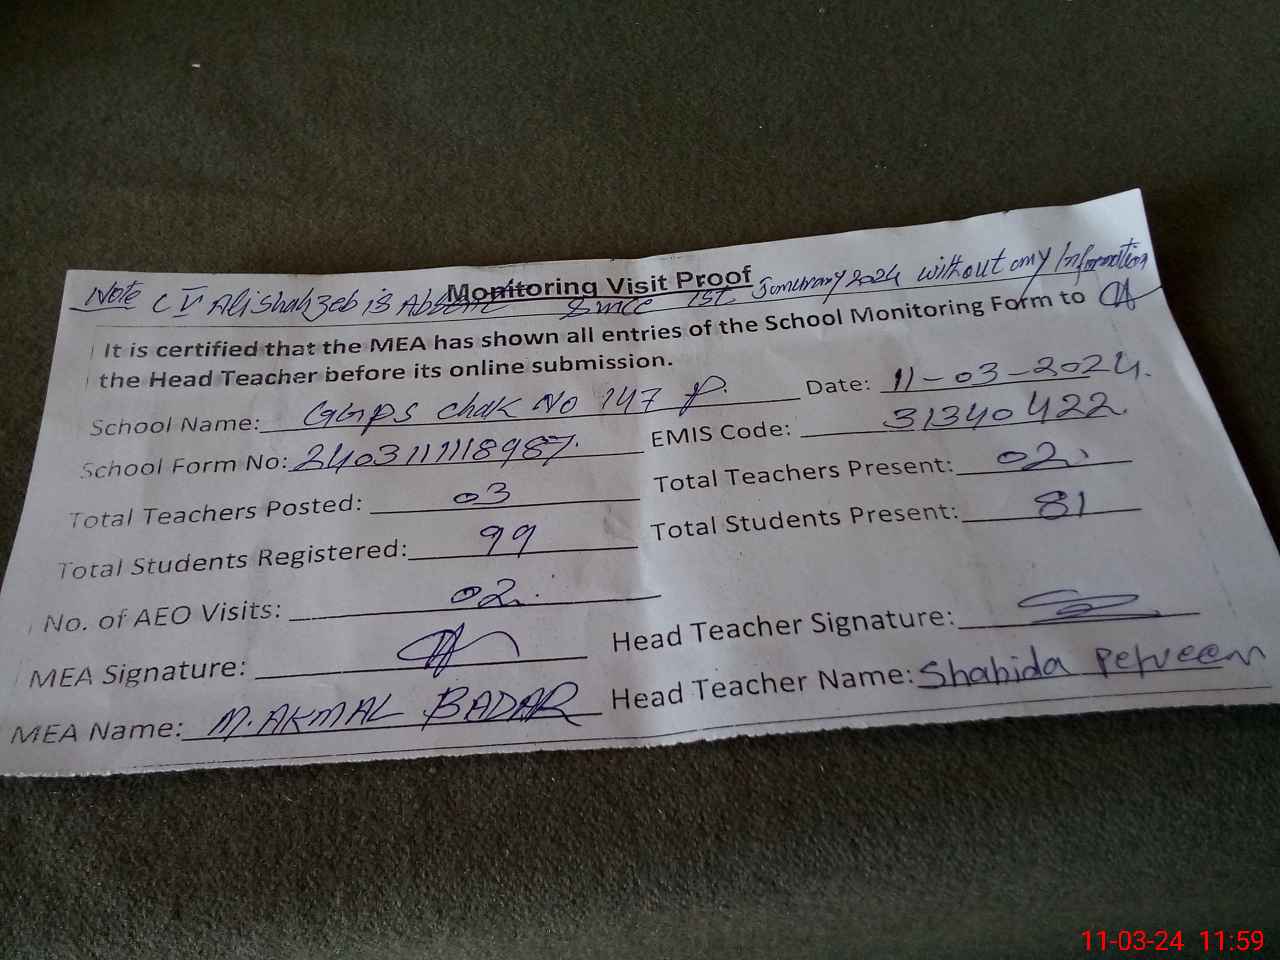 Monitoring Visit Proof
Note C IV Ali shahzeb is Absent Since 1st January 2024 without any Information
It is certified that the MEA has shown all entries of the School Monitoring Form to
the Head Teacher before its online submission.
School Name: Ggmps Chak No 147 P. Date: 11-03-2024.
School Form No: 2403111118987. EMIS Code: 31340422.
Total Teachers Posted: 03 Total Teachers Present: 02.
Total Students Registered: 99 Total Students Present: 81
No. of AEO Visits: 02.
MEA Signature: Head Teacher Signature:
MEA Name: M. AKMAL BADAR Head Teacher Name: Shahida Perveen
11-03-24 11:59